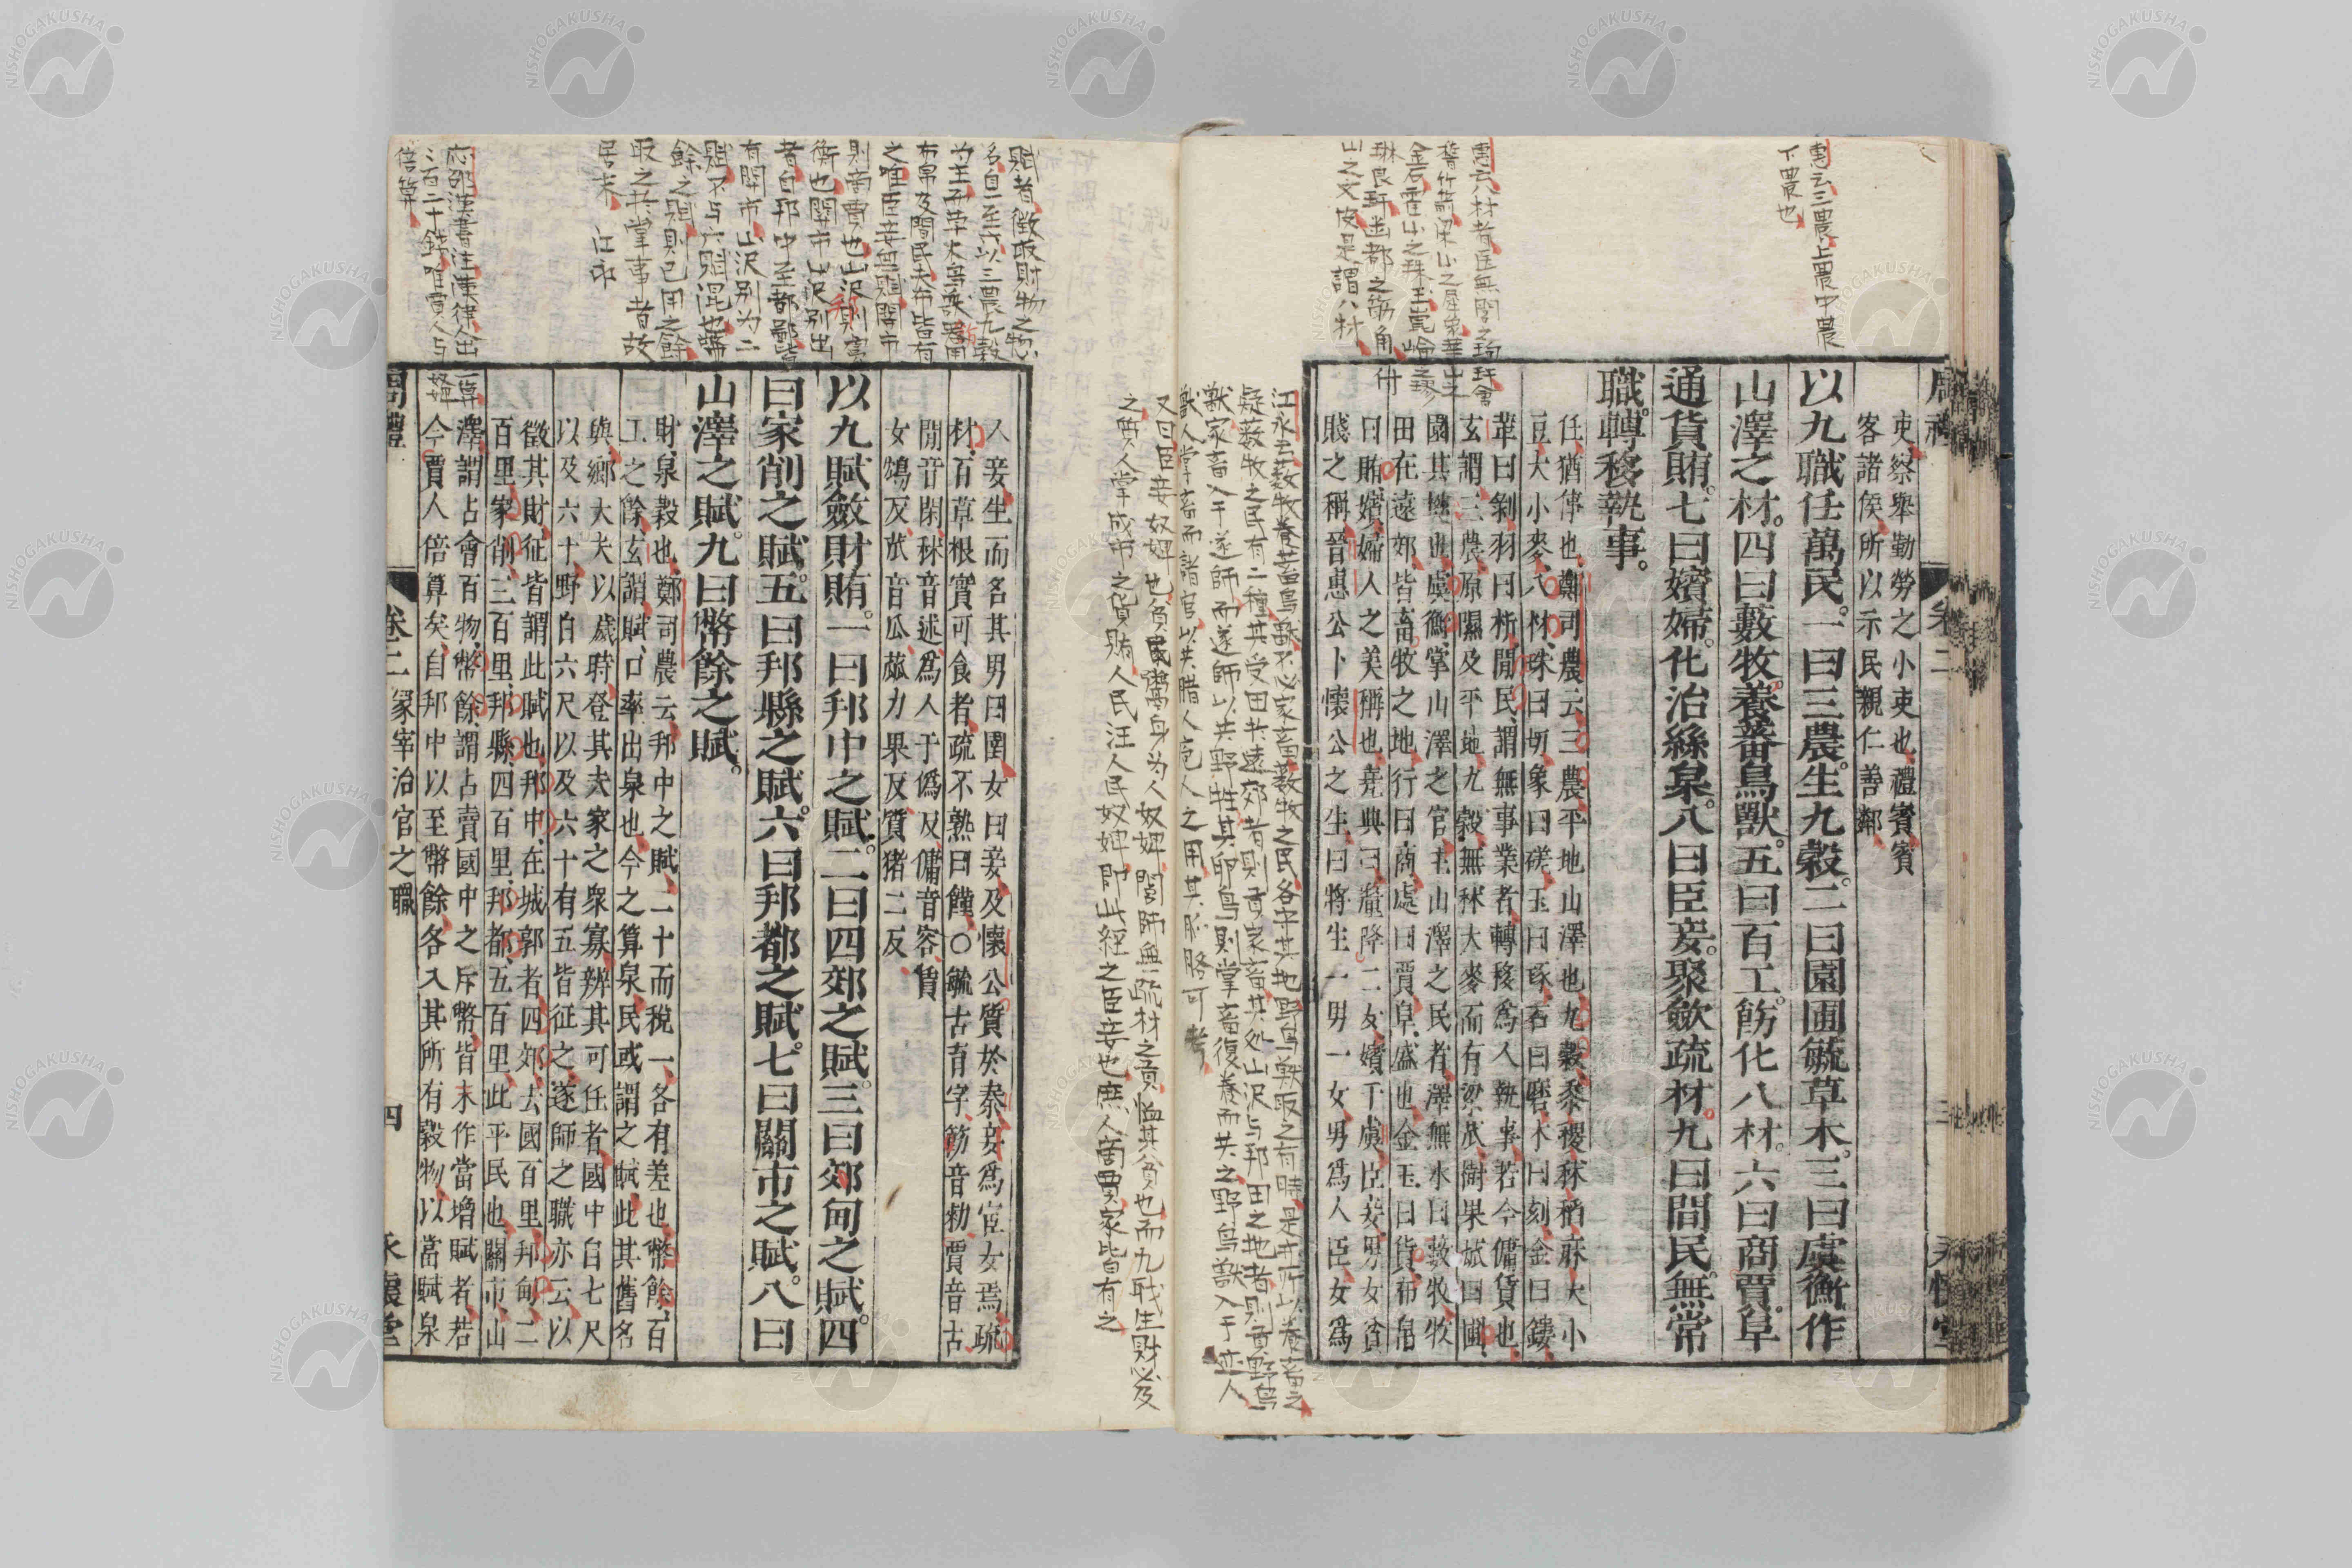 惠云三農上農中農
下農也
惠云八材者醫無閭之珣玕會
稽竹箭梁山之犀象華山之
金石霍山之珠玉崑崙之璆
琳良玕幽都之筋角斥
山之文皮是謂八材
吏察舉勤勞之小吏也禮賓賓
客諸侯所以示民親仁善鄰
以九職任萬民。一曰三農。生九穀。二曰園圃。毓草木。三曰虞衡。作
山澤之材。四曰藪牧。養蕃鳥獸。五曰百工。飭化八材。六曰商賈。阜
通貨賄。七曰嬪婦。化治絲枲。八曰臣妾。聚斂疏材。九曰閒民。無常
職。轉移執事。
任猶傳也鄭司農云三農平地山澤也九穀黍稷秫稻麻大小
豆大小麥八材珠曰切象曰磋玉曰琢石曰磨木曰刻金曰鏤
革曰剝羽曰析閒民謂無事業者轉移爲人執事若今傭賃也
玄謂三農原隰及平地九穀無秫大麥而有粱苽樹果蓏曰圃
園其樊也虞衡掌山澤之官主山澤之民者澤無水曰藪牧牧
田在遠郊皆畜牧之地行曰商處曰賈阜盛也金玉曰貨布帛
曰賄嬪婦人之美稱也堯典曰釐降二女嬪于虞臣妾男女貧
賤之稱晉惠公卜懷公之生曰將生一男一女男爲人臣女爲
江永云藪牧養蕃畜鳥獸不必家畜藪牧之民各守其地野鳥獸取之有時是亦所以養畜之
又曰臣妾奴婢也
之賈人掌成市之貨賄人民注人民奴婢即此經之臣妾也庶人商賈家皆有之
賦者徵取財物之物
名自一至六以三農九穀
爲主而草木鳥獸器用
布帛及閒民夫布皆有
之唯臣妾無賦關市
則商賈也山沢則虞
衡也關市山沢別出
者自邦中至都鄙皆
有關市山沢別为二
賦不与六賦混也幣
餘之賦則已用之餘
取之共掌事者故
居末 江永
應邵漢書注漢律人出一算
百二十錢唯賈人与奴婢
倍算
人妾生而名其男曰圉女曰妾及懷公質於秦妾爲宦女焉疏
材百草根實可食者疏不熟曰饉○毓古育字飭音勑賈音古
閒音閑秫音述爲人于僞反傭音容賃
女鴆反苽音瓜蓏力果反質猪二反
以九賦斂財賄。一曰邦中之賦。二曰四郊之賦。三曰郊甸之賦。四
曰家削之賦。五曰邦縣之賦。六曰邦都之賦。七曰關市之賦。八曰
山澤之賦。九曰幣餘之賦。
財泉穀也鄭司農云邦中之賦二十而稅一各有差也幣餘百
工之餘玄謂賦口率出泉也今之算泉民或謂之賦此其舊名
與鄉大夫以歲時登其夫家之衆寡辨其可任者國中自七尺
以及六十野自六尺以及六十有五皆征之遂師之職亦云以
徵其財征皆謂此賦也邦中在城郭者四郊去國百里邦甸二
百里家削三百里邦縣四百里邦都五百里此平民也關市山
澤謂占會百物幣餘謂占賣國中之斥幣皆末作當增賦者若
今賈人倍算矣自邦中以至幣餘各入其所有穀物以當賦泉
周禮 卷二 冢宰治官之職 四 永懷堂